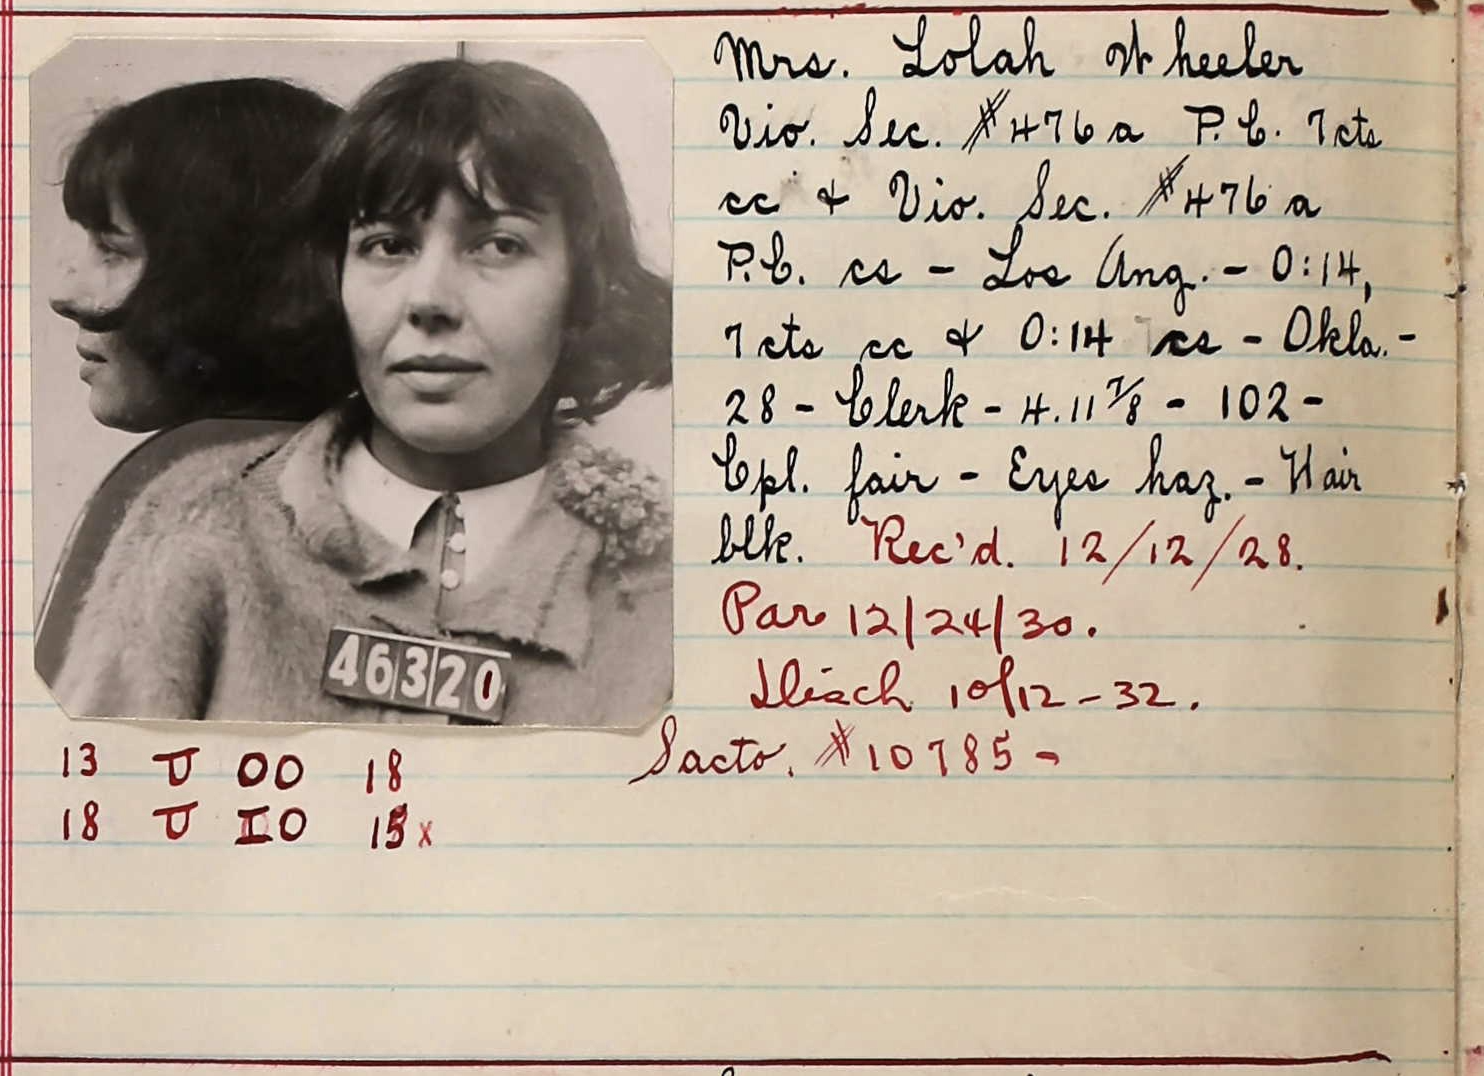 Mrs. Lolah Wheeler
Vio. Sec. #476a P.C. 7cts
cc & Vio. Sec. #476a
P.C. cs - Los Ang. - 0:14,
7cts cc & 0:14 cs - Okla. -
28 - Clerk - 4.11 7/8 - 102 -
Cpl. fair - Eyes haz. - Hair
blk. Rec'd. 12/12/28.
Par 12/24/30.
Disch 10/12-32.
Sacto. #10785 -
46320
13 U OO 18
18 U IO 15 x